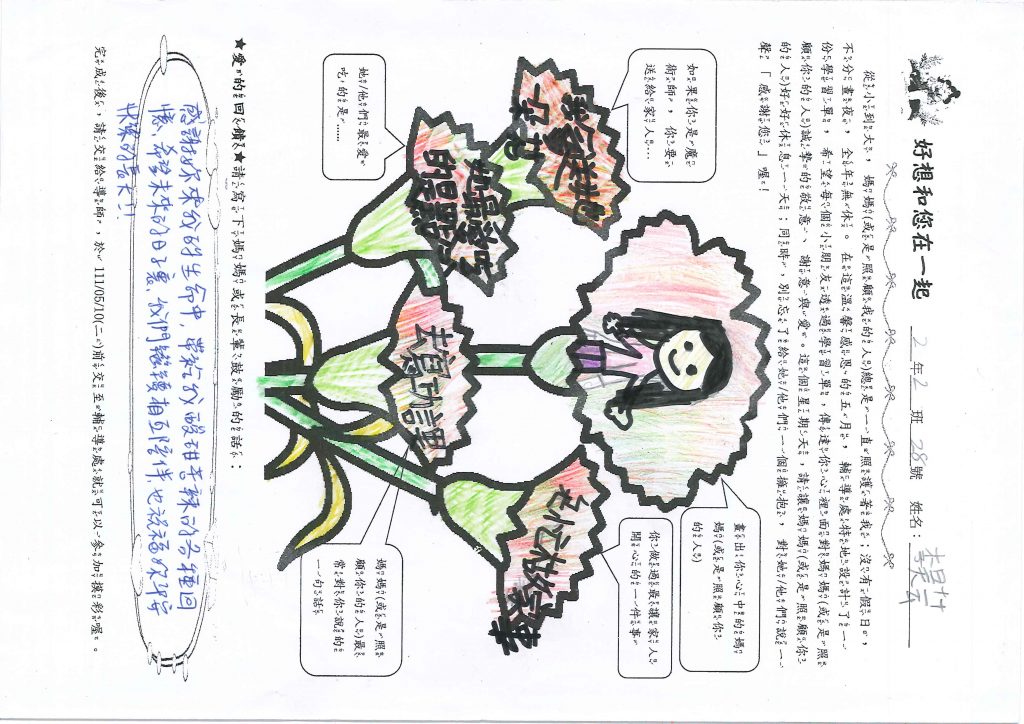 好想和您在一起
2年2班28號 姓名：
從小到大，媽媽(或是照顧我的人)總是一直照護著我，沒有假日，
不分晝夜，全年無休。在這溫馨感恩的五月，輔導處特地設計了一
份學習單，希望每個小朋友透過學習單，傳達你心裡面對媽媽(或是照
顧你的人)誠摯的敬意、謝意與愛。這個星期天，請讓媽媽(或是照顧你
的人)好好休息一天；同時，別忘了給她/他們一個擁抱，對她/他們說一
聲「感謝您」喔！
如果你是魔
術師，你要
送給家人…
畫出你心中的媽
媽(或是照顧你
的人)
你做過最讓家人
開心的一件事
她/他們最愛
吃的是……
媽媽(或是照
顧你的人)最
常對你說的
一句話
我會送她
一朵花
她最愛吃
的是
去寫功課
幫忙做家事
★愛的回饋★請寫下媽媽或長輩鼓勵的話：
感謝妳來我的生命中，帶給我酸甜苦辣的各種回
憶，希望未來的日子裏，我們繼續相互陪伴，也祝福妳平安
快樂的長大！
完成後，請交給導師，於 111/05/10(二)前交至輔導處就可以參加摸彩喔。